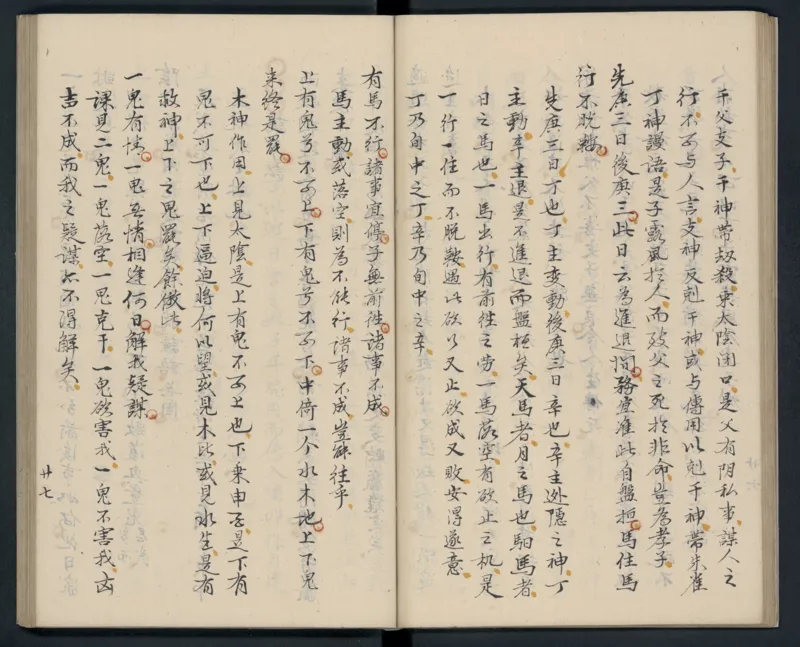 干父支子干神帶劫殺乘太陰閉口是父有陰私事謀人之
行不可与人言支神反剋干神或与傳用以剋干神帶朱雀
丁神謾語是子露風於人而致父之死於非命豈為孝子
先庚三日後庚三此日云為進退間務宜准此自盤桓馬住馬
行不脫鞍
先庚三日丁也丁主变動後庚三日辛也辛主迯隱之神丁
主動辛主退是不進退而盤桓矣天馬者月之馬也馹馬者
日之馬也一馬出行有前往之勞一馬落空有欲止之机是
一行一住而不脫鞍遇此欲行又止欲成又敗安得遂意
丁乃旬中之丁辛乃旬中之辛
有馬不行諸事宜停子無前徃諸事不成
馬主動或落空則為不能行諸事不成豈能往乎
上有鬼兮不可上下有鬼兮不可下中倚一个水木地上下鬼
来終是罷
木神作用上見太陰是上有鬼不可上也下乗申子是下有
鬼不可下也上下逼迫將何以望或見木比或見水生是有
救神上下之鬼罷矣餘倣此
一鬼有情一鬼無情相逢何日解我疑謀
課見二鬼一鬼落空一鬼克干一鬼欲害我一鬼不害我凶
吉不成而我之疑謀亦不得解矣
廿七